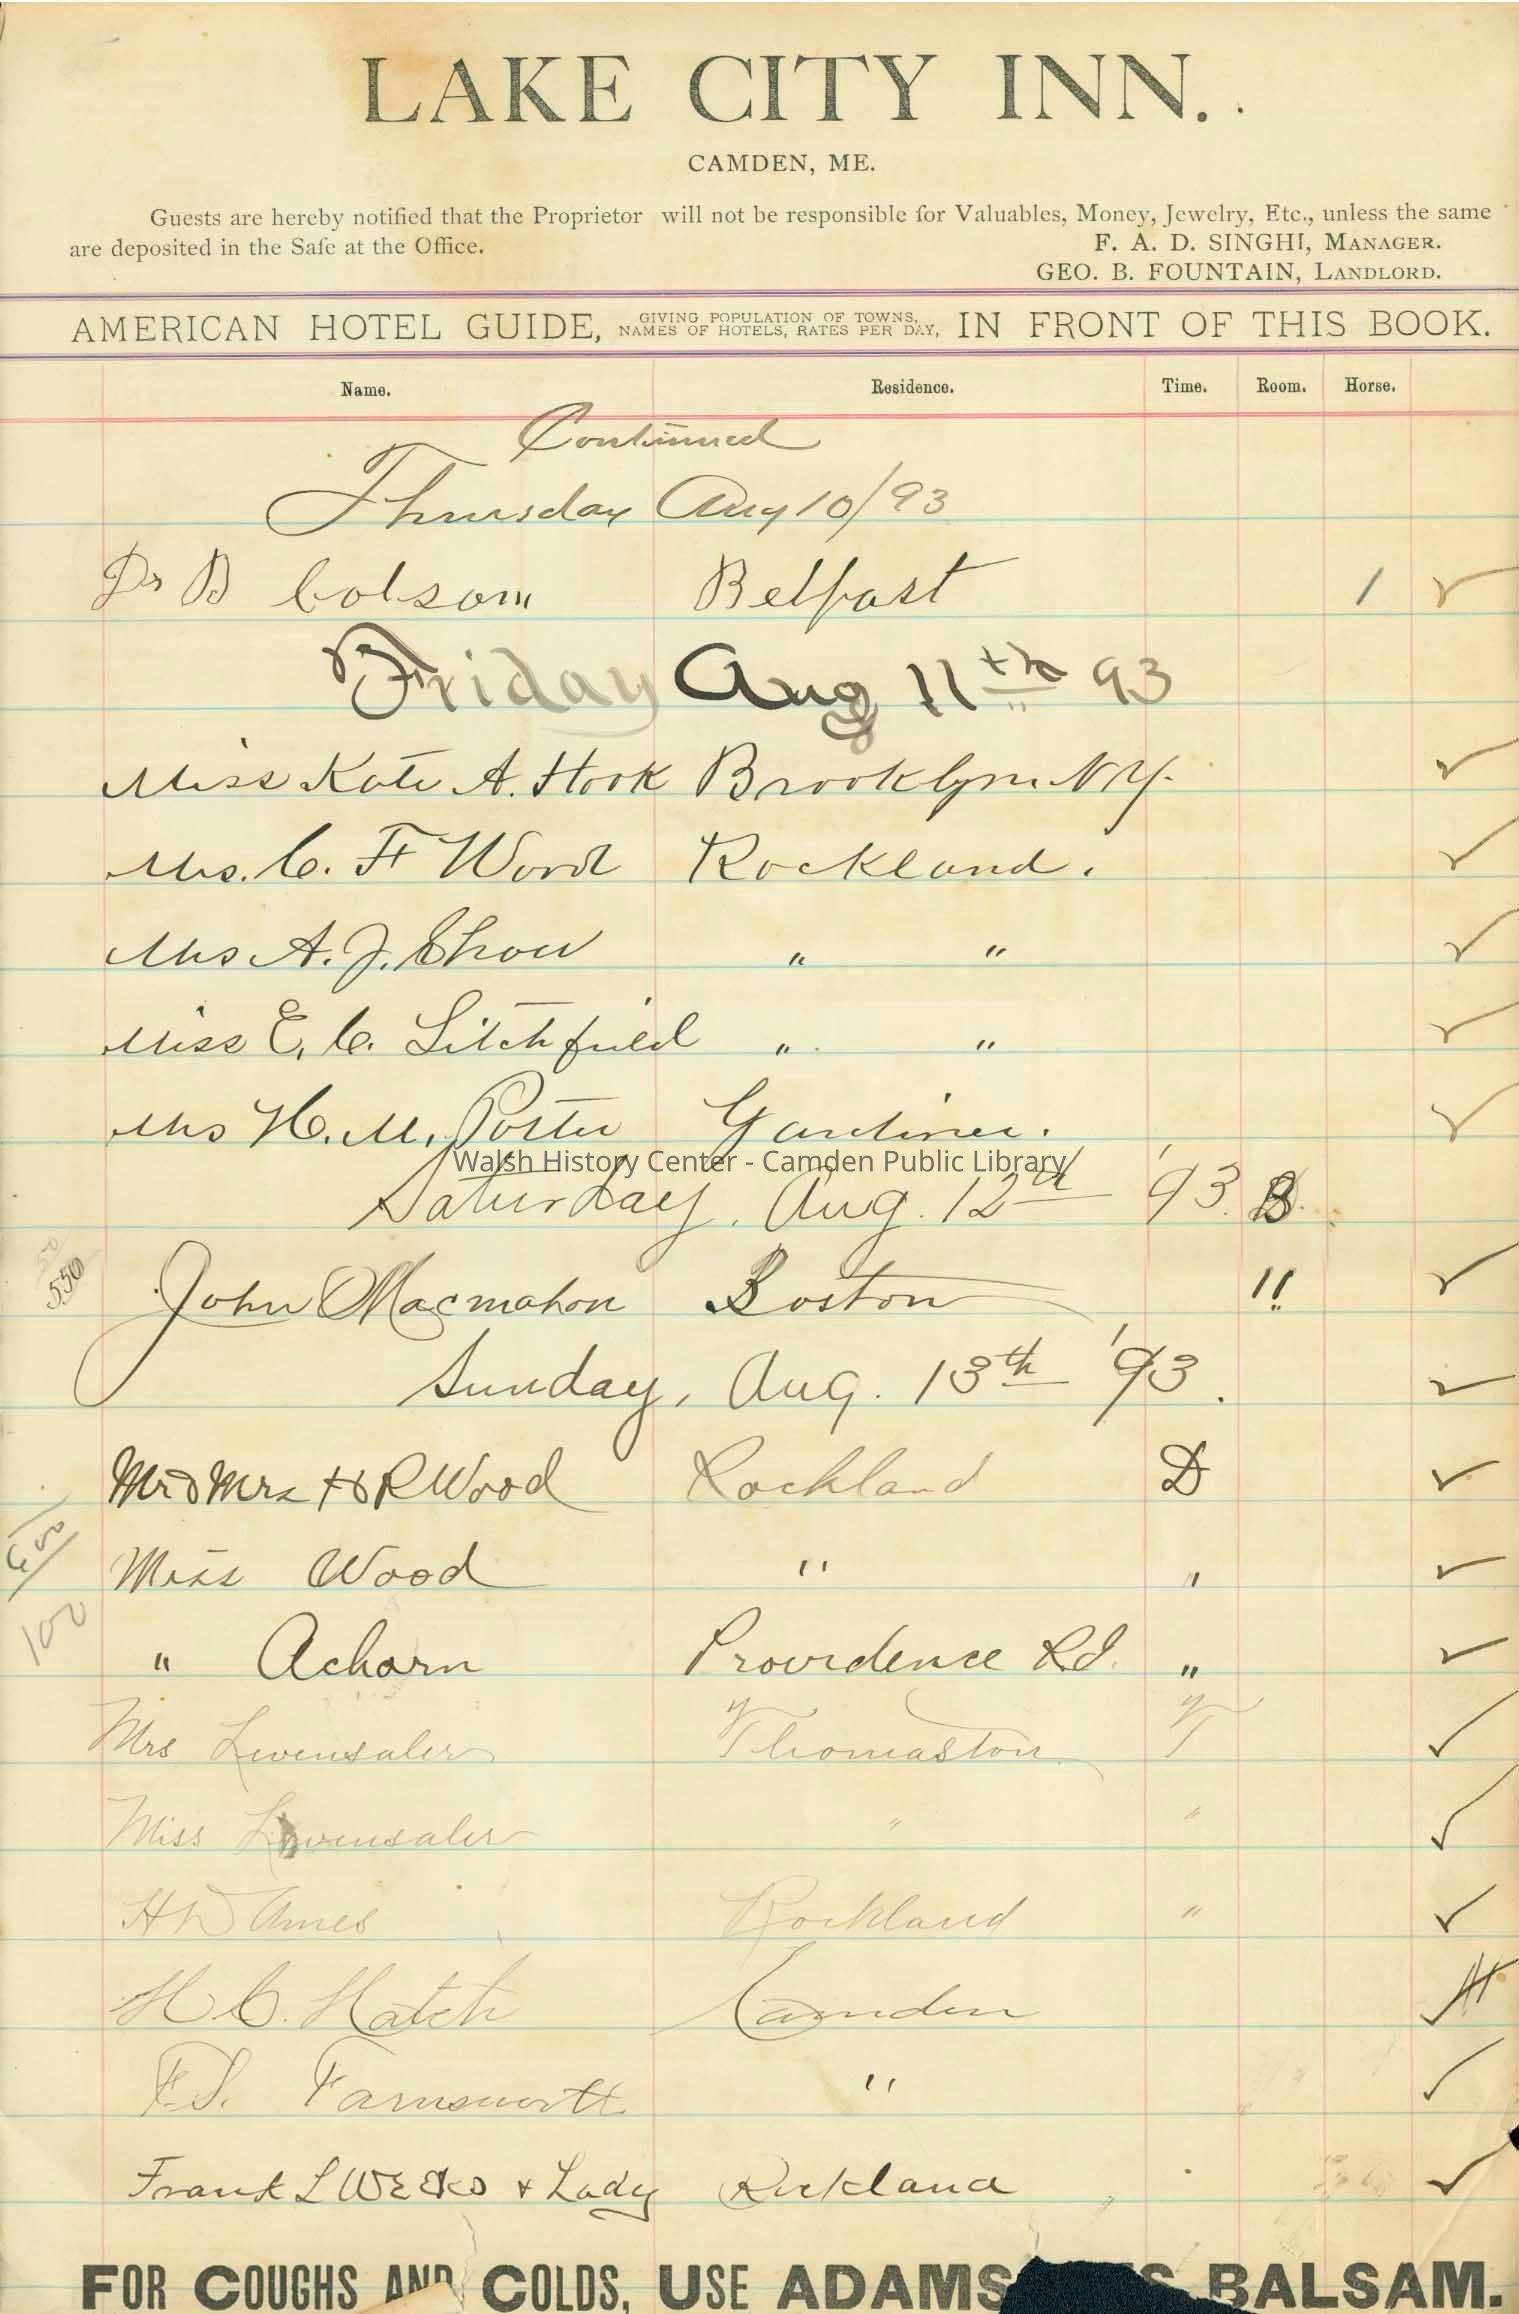 LAKE CITY INN.
CAMDEN, ME.
Guests are hereby notified that the Proprietor will not be responsible for Valuables, Money, Jewelry, Etc., unless the same
are deposited in the Safe at the Office. F. A. D. SINGHI, MANAGER.
GEO. B. FOUNTAIN, LANDLORD.
AMERICAN HOTEL GUIDE, GIVING POPULATION OF TOWNS, NAMES OF HOTELS, RATES PER DAY, IN FRONT OF THIS BOOK.
Name. Residence. Time. Room. Horse.
Continued
Thursday Aug 10/93
Dr B Colson Belfast 1 ✓
Friday Aug 11th 93
Miss Kate A. Hook Brooklyn N Y. ✓
Mrs. C. F Wood Rockland. ✓
Mrs A. J. Shaw " " ✓
Miss E. C. Litchfield " " ✓
Mrs H. M. Porter Gardiner. ✓
Walsh History Center - Camden Public Library
Saturday, Aug. 12d '93. B.
550 John Macmahon Boston 11 ✓
Sunday, Aug. 13th '93. ✓
Mr & Mrs H R Wood Rockland D ✓
Miss Wood " " ✓
100 " Acharn Providence R.I. " ✓
Mrs Levensaler Thomaston T ✓
Miss Levensaler " " ✓
H D Ames Rockland " ✓
H C. Hatch Camden
F. S. Farnsworth " ✓
Frank L Weeks & Lady Rockland ✓
FOR COUGHS AND COLDS, USE ADAMS BALSAM.